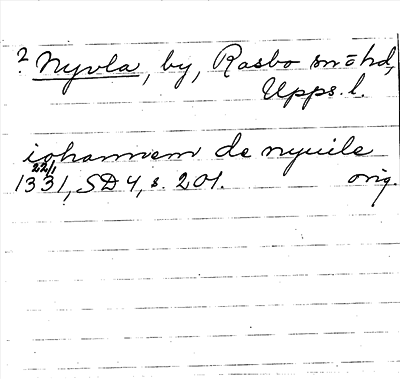 ? Nyvla, by, Rasbo sn = hd,
Upps. l.
iohannem de nyuile
22/1
1331, SD 4, s. 201. orig.